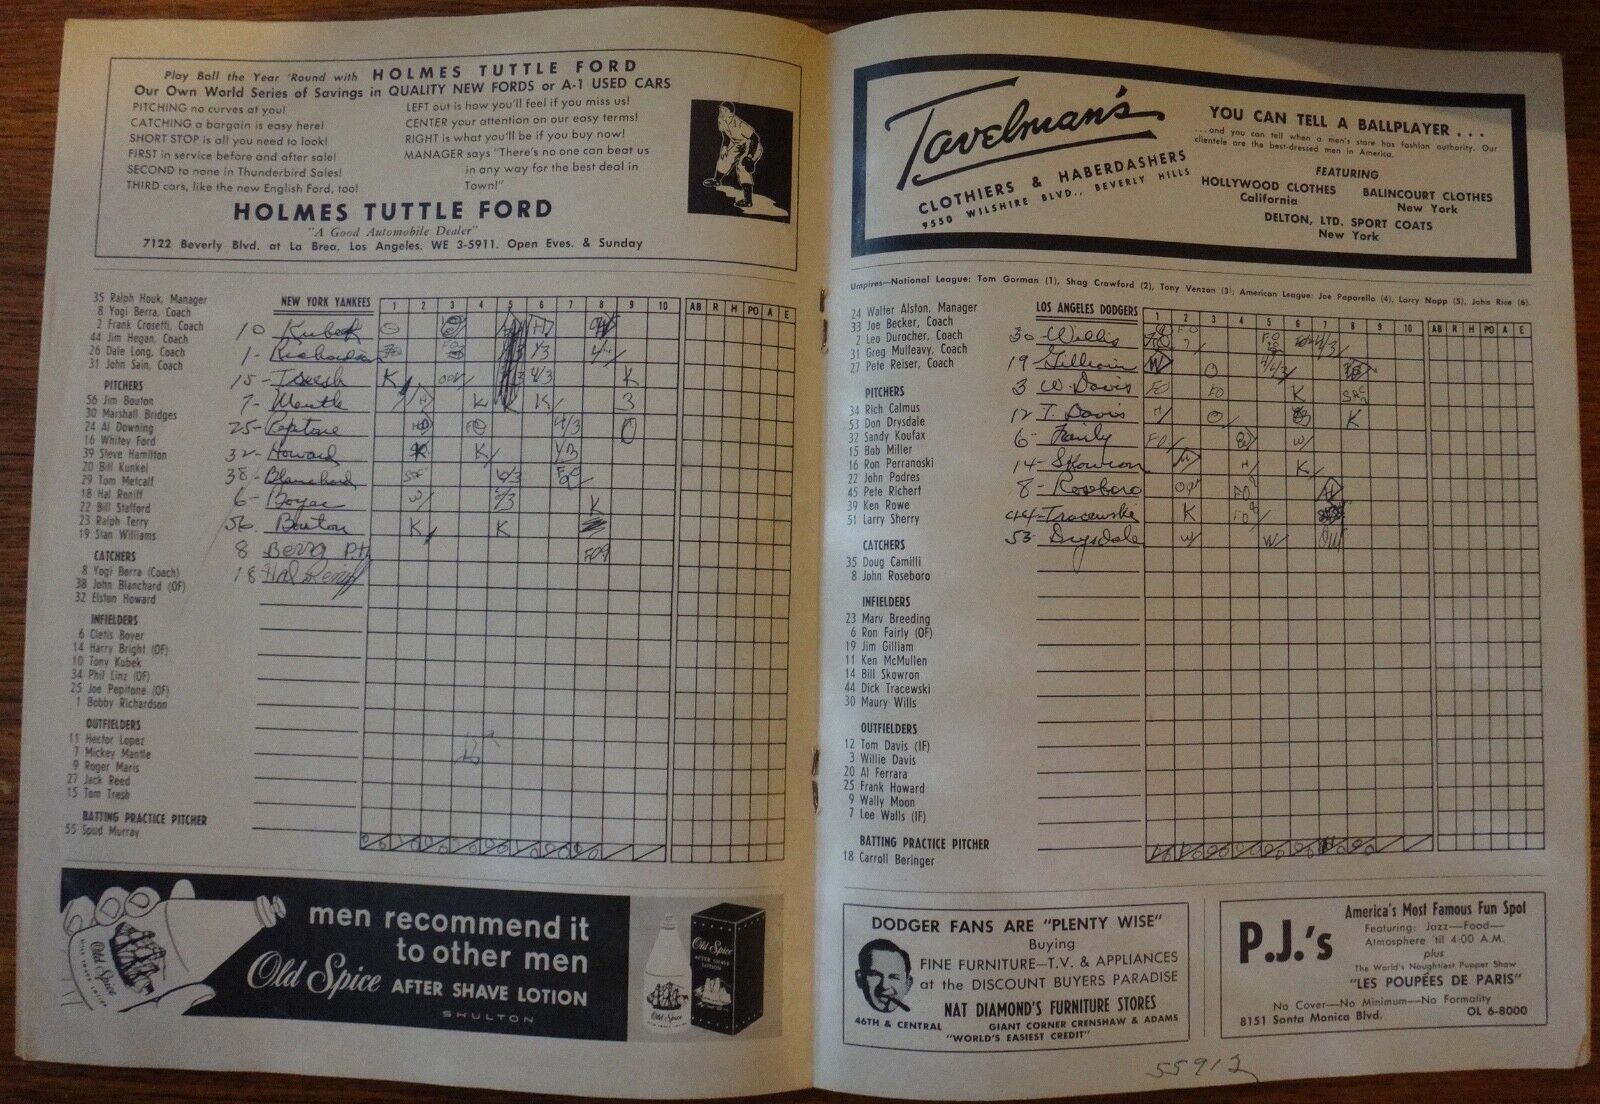 Play Ball the Year 'Round with HOLMES TUTTLE FORD
Our Own World Series of Savings in QUALITY NEW FORDS or A-1 USED CARS
PITCHING no curves at you!
CATCHING a bargain is easy here!
SHORT STOP is all you need to look!
FIRST in service before and after sale!
SECOND to none in Thunderbird Sales!
THIRD cars, like the new English Ford, too!
LEFT out is how you'll feel if you miss us!
CENTER your attention on our easy terms!
RIGHT is what you'll be if you buy now!
MANAGER says "There's no one can beat us
in any way for the best deal in
Town!"
HOLMES TUTTLE FORD
"A Good Automobile Dealer"
7122 Beverly Blvd. at La Brea, Los Angeles. WE 3-5911. Open Eves. & Sunday
35 Ralph Houk, Manager
8 Yogi Berra, Coach
2 Frank Crosetti, Coach
44 Jim Hegan, Coach
26 Dale Long, Coach
31 John Sain, Coach
PITCHERS
56 Jim Bouton
30 Marshall Bridges
24 Al Downing
16 Whitey Ford
39 Steve Hamilton
20 Bill Kunkel
29 Tom Metcalf
18 Hal Reniff
22 Bill Stafford
23 Ralph Terry
19 Stan Williams
CATCHERS
8 Yogi Berra (Coach)
38 John Blanchard (OF)
32 Elston Howard
INFIELDERS
6 Cletis Boyer
14 Harry Bright (OF)
10 Tony Kubek
34 Phil Linz (OF)
25 Joe Pepitone (OF)
1 Bobby Richardson
OUTFIELDERS
11 Hector Lopez
7 Mickey Mantle
9 Roger Maris
27 Jack Reed
15 Tom Tresh
BATTING PRACTICE PITCHER
55 Spud Murray
NEW YORK YANKEES 1 2 3 4 5 6 7 8 9 10 AB R H PO A E
10 Kubek
1- Richardson
15- Tresh K
7- Mantle
25-
32- Howard
38- Blanchard
6- Boyer
56- Bouton K K
8 Berra P.H.
18 Hal Reniff
men recommend it
to other men
Old Spice AFTER SHAVE LOTION
SHULTON
Tavelman's
CLOTHIERS & HABERDASHERS
9550 WILSHIRE BLVD., BEVERLY HILLS
YOU CAN TELL A BALLPLAYER . . .
. . . and you can tell when a men's store has fashion authority. Our
clientele are the best-dressed men in America.
FEATURING
HOLLYWOOD CLOTHES
California
BALINCOURT CLOTHES
New York
DELTON, LTD. SPORT COATS
New York
Umpires—National League: Tom Gorman (1), Shag Crawford (2), Tony Venzon (3); American League: Joe Paparella (4), Larry Napp (5), John Rice (6).
24 Walter Alston, Manager
33 Joe Becker, Coach
2 Leo Durocher, Coach
31 Greg Mulleavy, Coach
27 Pete Reiser, Coach
PITCHERS
34 Rich Calmus
53 Don Drysdale
32 Sandy Koufax
15 Bob Miller
16 Ron Perranoski
22 John Podres
45 Pete Richert
39 Ken Rowe
51 Larry Sherry
CATCHERS
35 Doug Camilli
8 John Roseboro
INFIELDERS
23 Marv Breeding
6 Ron Fairly (OF)
19 Jim Gilliam
11 Ken McMullen
14 Bill Skowron
44 Dick Tracewski
30 Maury Wills
OUTFIELDERS
12 Tom Davis (IF)
3 Willie Davis
20 Al Ferrara
25 Frank Howard
9 Wally Moon
7 Lee Walls (IF)
BATTING PRACTICE PITCHER
18 Carroll Beringer
LOS ANGELES DODGERS 1 2 3 4 5 6 7 8 9 10 AB R H PO A E
30 Wills
19- Gilliam
3 W. Davis
12 T. Davis
6- Fairly
14- Skowron
8- Roseboro
44-Tracewski
53- Drysdale
DODGER FANS ARE "PLENTY WISE"
Buying
FINE FURNITURE—T.V. & APPLIANCES
at the DISCOUNT BUYERS PARADISE
NAT DIAMOND'S FURNITURE STORES
46TH & CENTRAL GIANT CORNER CRENSHAW & ADAMS
"WORLD'S EASIEST CREDIT"
P.J.'s
America's Most Famous Fun Spot
Featuring: Jazz—Food—
Atmosphere 'til 4:00 A.M.
plus
The World's Naughtiest Pupper Show
"LES POUPÉES DE PARIS"
No Cover—No Minimum—No Formality
8151 Santa Monica Blvd. OL 6-8000
55912